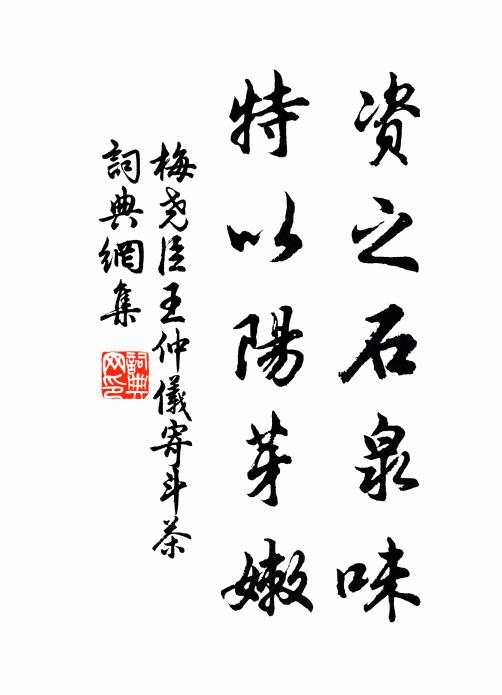 资之石泉味
特以陽芽嫩
梅尧臣王仲儀寄斗茶
詞典網集
詞典网印